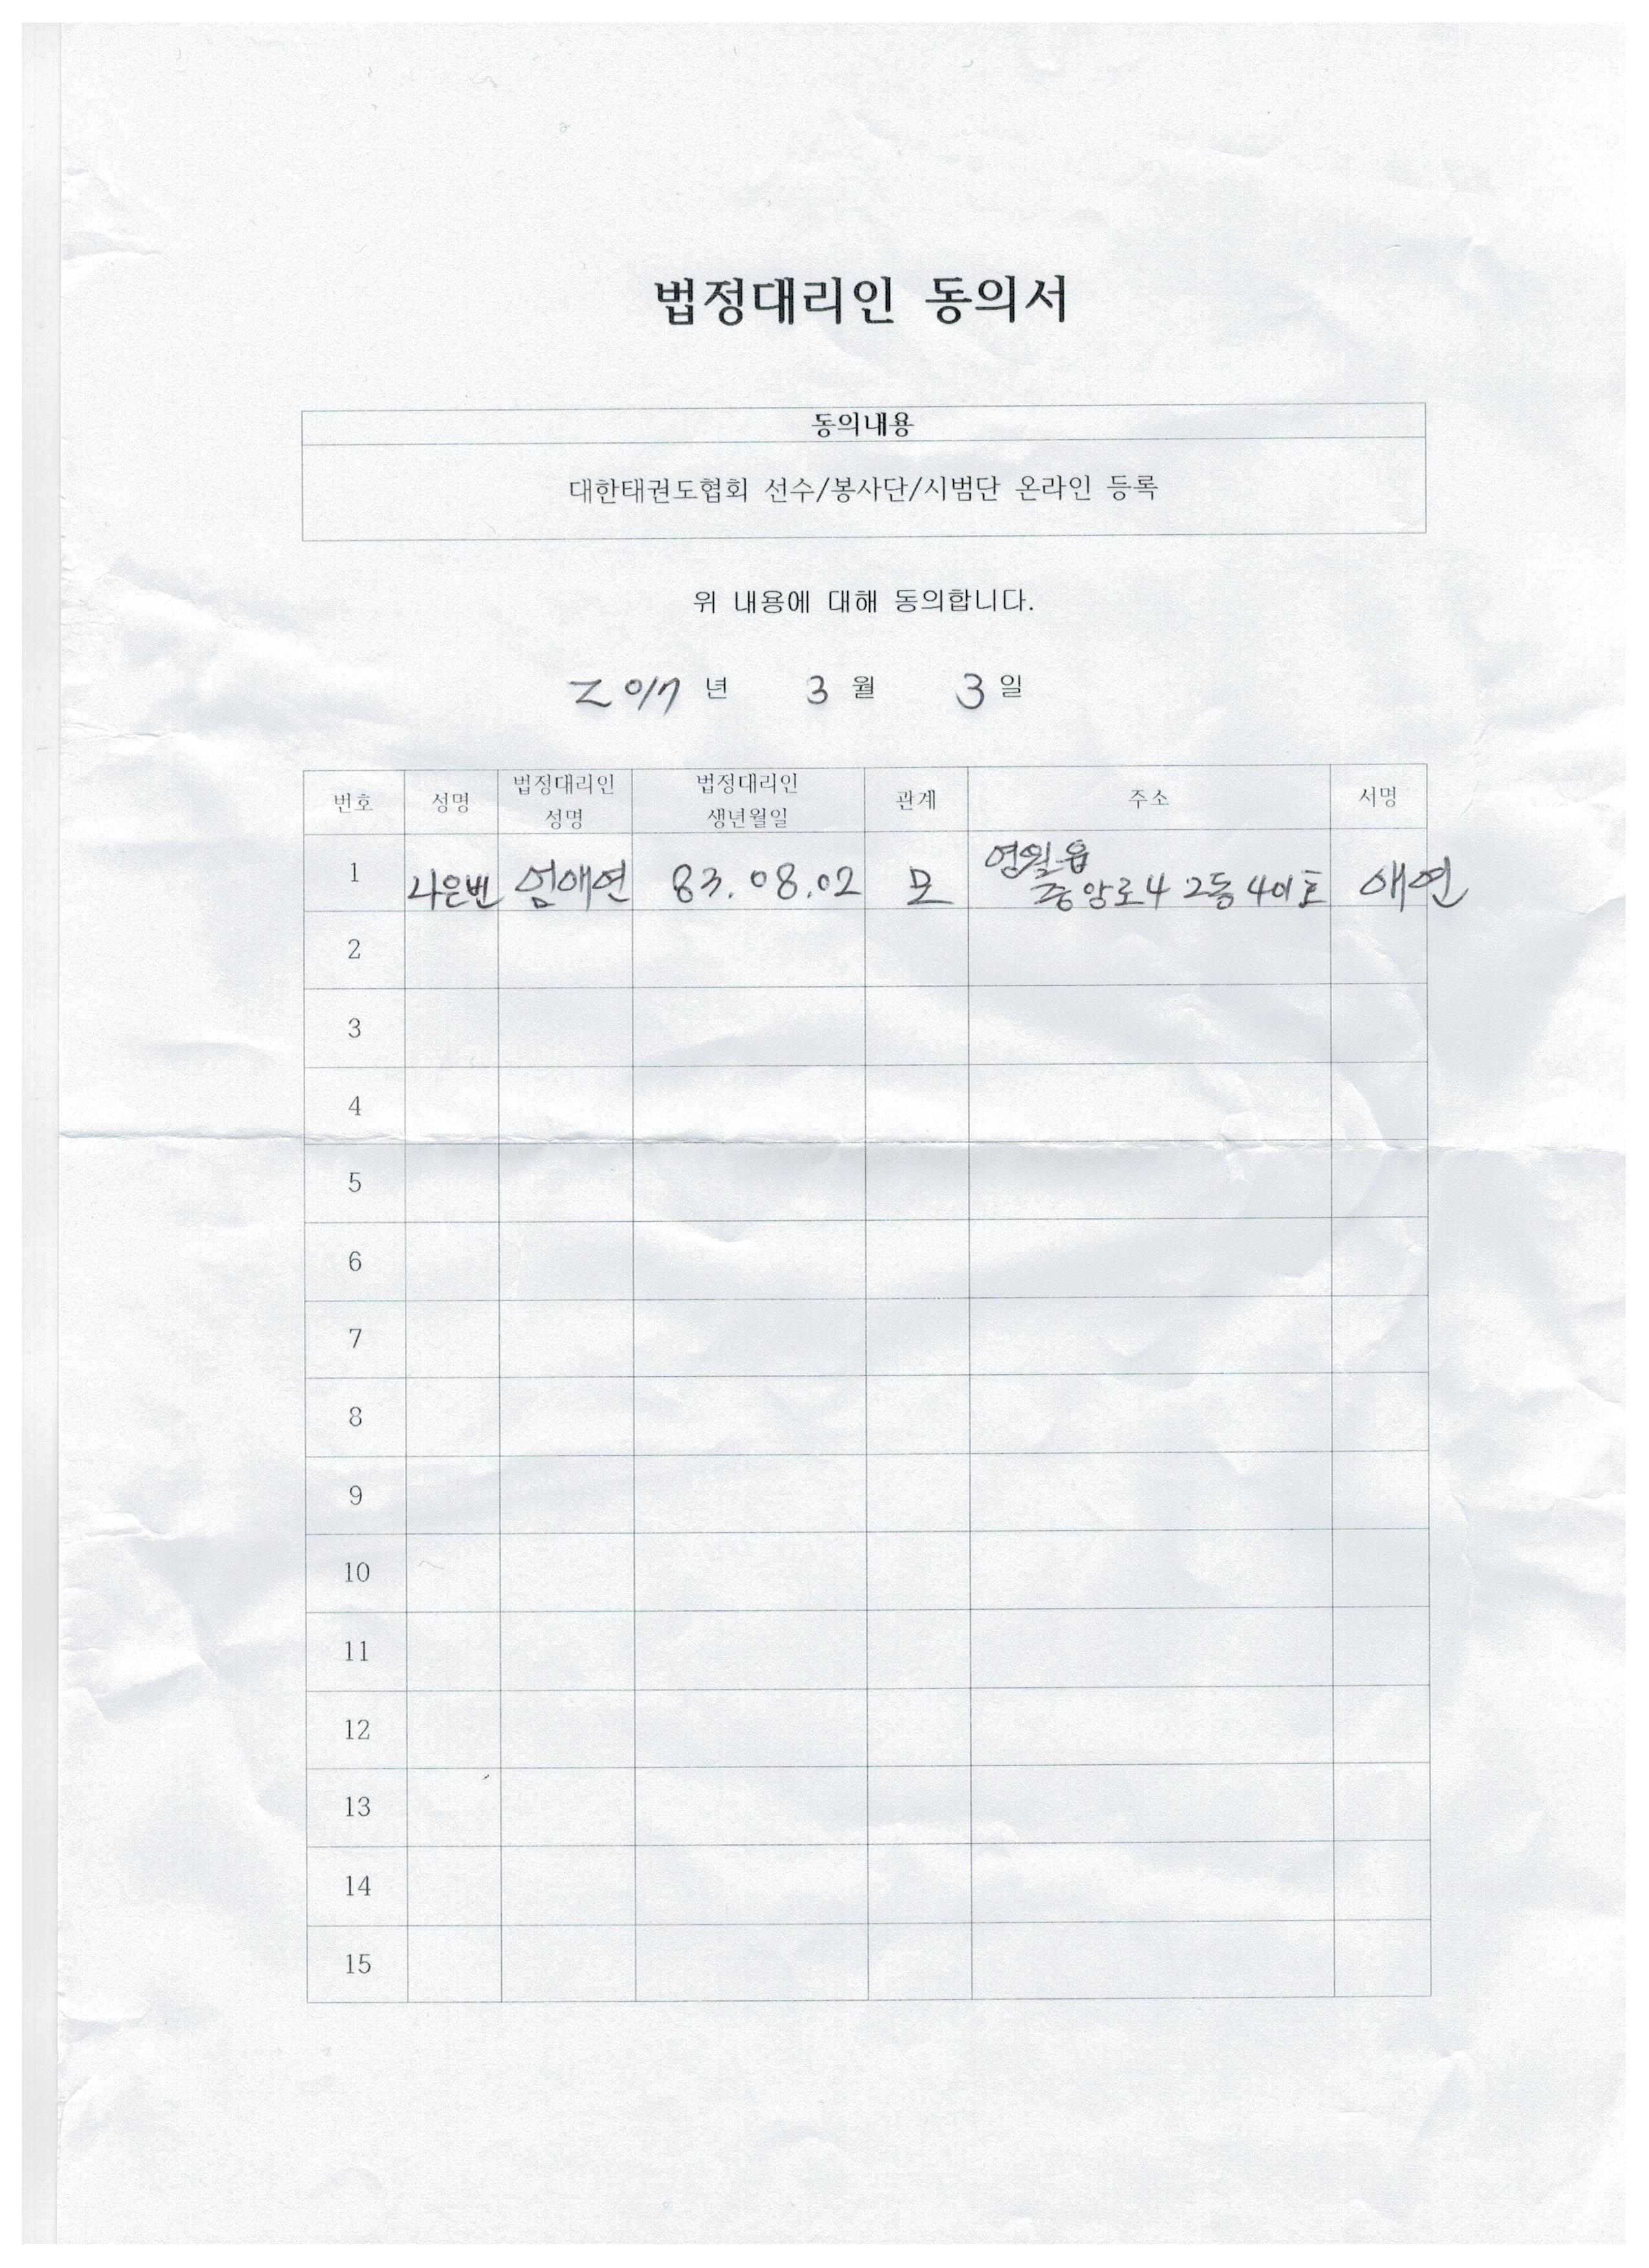 법정대리인 동의서
동의내용
대한태권도협회 선수/봉사단/시범단 온라인 등록
위 내용에 대해 동의합니다.
2017 년 3 월 3 일
번호 성명 법정대리인 성명 법정대리인 생년월일 관계 주소 서명
1 나은빈 엄애연 83.08.02 모 영일읍 중앙로4 2동 401호 애연
2
3
4
5
6
7
8
9
10
11
12
13
14
15